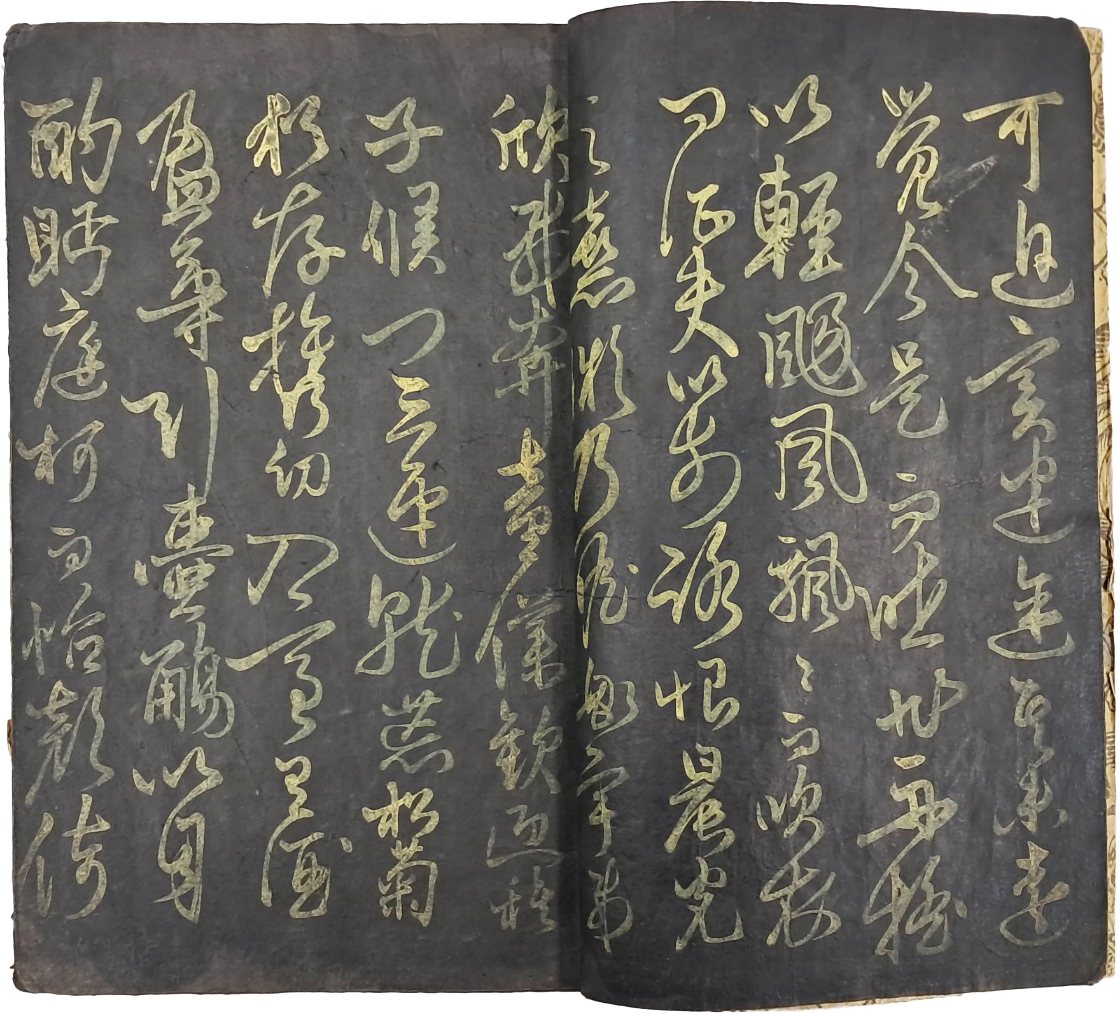 可追實迷途其未遠
覺今是而昨非舟搖
以輕颺風飄〻而吹衣
問征夫以前路恨晨光
之熹微乃瞻衡宇載
欣載奔童僕歡迎稚
子候門三逕就荒松菊
猶存攜幼入室有酒
盈尊引壺觴以自
酌眄庭柯而怡顏倚